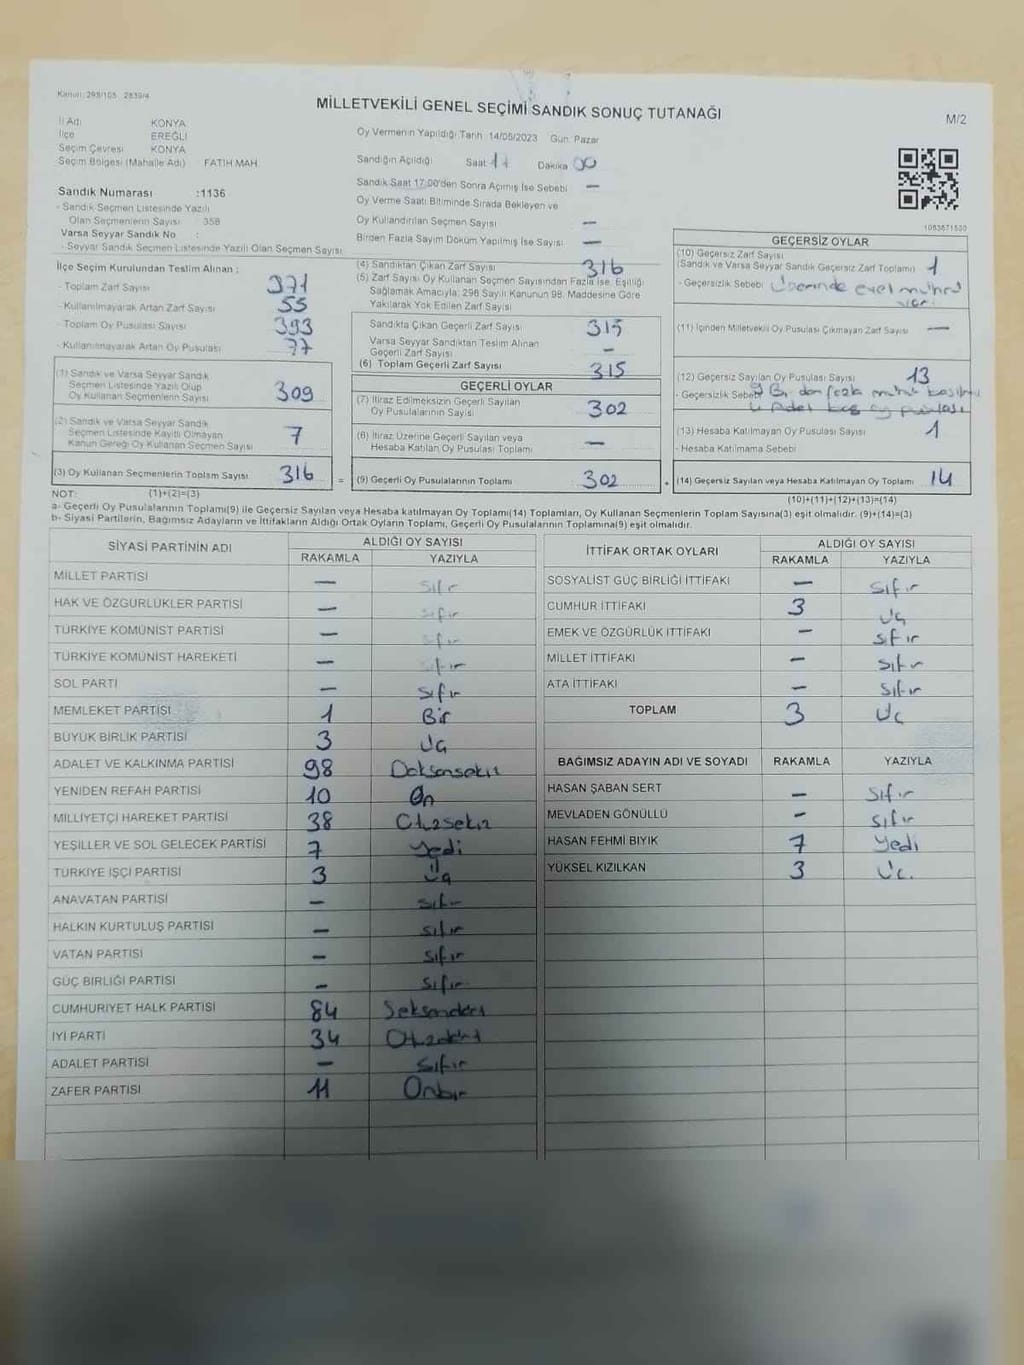 Kanun: 298/105 2839/4
MİLLETVEKİLİ GENEL SEÇİMİ SANDIK SONUÇ TUTANAĞI
M/2
İl Adı KONYA
İlçe EREĞLİ
Seçim Çevresi KONYA
Seçim Bölgesi (Mahalle Adı) FATİH MAH.
Oy Vermenin Yapıldığı Tarih 14/05/2023 Gün: Pazar
Sandığın Açıldığı Saat 17 Dakika 00
Sandık Saat 17.00'den Sonra Açılmış İse Sebebi —
Oy Verme Saati Bitiminde Sırada Bekleyen ve
Oy Kullandırılan Seçmen Sayısı —
Birden Fazla Sayım Döküm Yapılmış İse Sayısı —
Sandık Numarası :1136
- Sandık Seçmen Listesinde Yazılı
Olan Seçmenlerin Sayısı 358
Varsa Seyyar Sandık No :
- Seyyar Sandık Seçmen Listesinde Yazılı Olan Seçmen Sayısı
İlçe Seçim Kurulundan Teslim Alınan :
- Toplam Zarf Sayısı 371
- Kullanılmayarak Artan Zarf Sayısı 55
- Toplam Oy Pusulası Sayısı 393
- Kullanılmayarak Artan Oy Pusulası 77
(1) Sandık ve Varsa Seyyar Sandık
Seçmen Listesinde Yazılı Olup
Oy Kullanan Seçmenlerin Sayısı 309
(2) Sandık ve Varsa Seyyar Sandık
Seçmen Listesinde Kayıtlı Olmayan
Kanun Gereği Oy Kullanan Seçmen Sayısı 7
(3) Oy Kullanan Seçmenlerin Toplam Sayısı 316
(4) Sandıktan Çıkan Zarf Sayısı 316
(5) Zarf Sayısı Oy Kullanan Seçmen Sayısından Fazla İse, Eşitliği
Sağlamak Amacıyla; 298 Sayılı Kanunun 98. Maddesine Göre
Yakılarak Yok Edilen Zarf Sayısı
Sandıkta Çıkan Geçerli Zarf Sayısı 315
Varsa Seyyar Sandıktan Teslim Alınan
Geçerli Zarf Sayısı —
(6) Toplam Geçerli Zarf Sayısı 315
GEÇERLİ OYLAR
(7) İtiraz Edilmeksizin Geçerli Sayılan
Oy Pusulalarının Sayısı 302
(8) İtiraz Üzerine Geçerli Sayılan veya
Hesaba Katılan Oy Pusulası Toplamı —
= (9) Geçerli Oy Pusulalarının Toplamı 302
1083671500
GEÇERSİZ OYLAR
(10) Geçersiz Zarf Sayısı
(Sandık ve Varsa Seyyar Sandık Geçersiz Zarf Toplamı) 1
- Geçersizlik Sebebi Üzerinde evet mührü
var.
(11) İçinden Milletvekili Oy Pusulası Çıkmayan Zarf Sayısı —
(12) Geçersiz Sayılan Oy Pusulası Sayısı 13
- Geçersizlik Sebebi 9 Bir den fazla mühür basılmış
4 Adet boş oy pusulası
(13) Hesaba Katılmayan Oy Pusulası Sayısı 1
- Hesaba Katılmama Sebebi
+ (14) Geçersiz Sayılan veya Hesaba Katılmayan Oy Toplamı 14
NOT: (1)+(2)=(3)
(10)+(11)+(12)+(13)=(14)
a- Geçerli Oy Pusulalarının Toplamı(9) ile Geçersiz Sayılan veya Hesaba katılmayan Oy Toplamı(14) Toplamları, Oy Kullanan Seçmenlerin Toplam Sayısına(3) eşit olmalıdır. (9)+(14)=(3)
b- Siyasi Partilerin, Bağımsız Adayların ve İttifakların Aldığı Ortak Oyların Toplamı, Geçerli Oy Pusulalarının Toplamına(9) eşit olmalıdır.
SİYASİ PARTİNİN ADI ALDIĞI OY SAYISI
RAKAMLA YAZIYLA
MİLLET PARTİSİ — Sıfır
HAK VE ÖZGÜRLÜKLER PARTİSİ — Sıfır
TÜRKİYE KOMÜNİST PARTİSİ — Sıfır
TÜRKİYE KOMÜNİST HAREKETİ — Sıfır
SOL PARTİ — Sıfır
MEMLEKET PARTİSİ 1 Bir
BÜYÜK BİRLİK PARTİSİ 3 Üç
ADALET VE KALKINMA PARTİSİ 98 Doksansekiz
YENİDEN REFAH PARTİSİ 10 On
MİLLİYETÇİ HAREKET PARTİSİ 38 Otuzsekiz
YEŞİLLER VE SOL GELECEK PARTİSİ 7 Yedi
TÜRKİYE İŞÇİ PARTİSİ 3 Üç
ANAVATAN PARTİSİ — Sıfır
HALKIN KURTULUŞ PARTİSİ — Sıfır
VATAN PARTİSİ — Sıfır
GÜÇ BİRLİĞİ PARTİSİ — Sıfır
CUMHURİYET HALK PARTİSİ 84 Seksendört
İYİ PARTİ 34 Otuzdört
ADALET PARTİSİ — Sıfır
ZAFER PARTİSİ 11 Onbir
İTTİFAK ORTAK OYLARI ALDIĞI OY SAYISI
RAKAMLA YAZIYLA
SOSYALİST GÜÇ BİRLİĞİ İTTİFAKI — Sıfır
CUMHUR İTTİFAKI 3 Üç
EMEK VE ÖZGÜRLÜK İTTİFAKI — Sıfır
MİLLET İTTİFAKI — Sıfır
ATA İTTİFAKI — Sıfır
TOPLAM 3 Üç
BAĞIMSIZ ADAYIN ADI VE SOYADI RAKAMLA YAZIYLA
HASAN ŞABAN SERT — Sıfır
MEVLADEN GÖNÜLLÜ — Sıfır
HASAN FEHMİ BIYIK 7 Yedi
YÜKSEL KIZILKAN 3 Üç.